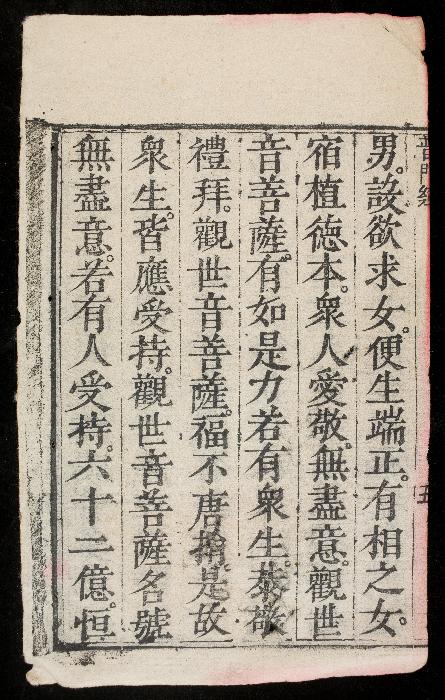 普門經
五
男。設欲求女。便生端正。有相之女。
宿植德本。衆人愛敬。無盡意。觀世
音菩薩。有如是力。若有衆生。恭敬
禮拜。觀世音菩薩。福不唐捐。是故
衆生。皆應受持。觀世音菩薩名號
無盡意。若有人受持。六十二億。恒